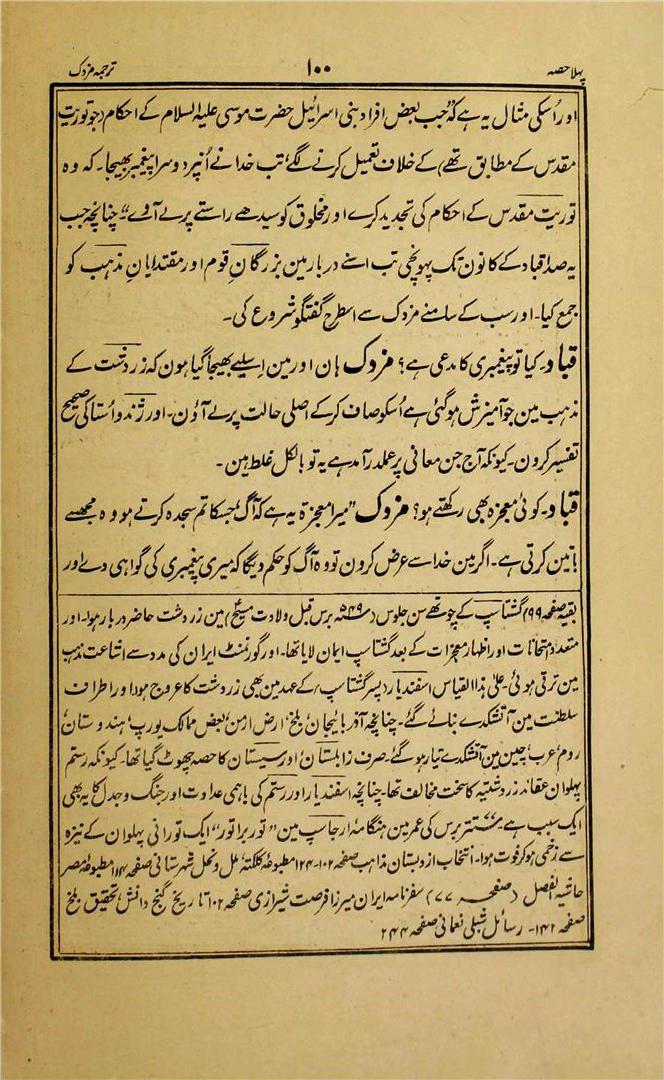 پہلا حصہ ۱۰۰ ترجمہ مزدک
اور اُسکی مثال یہ ہے کہ "جب بعض افراد بنی اسرائیل حضرت موسی علیہ السلام کے احکام (جو توریت
مقدس کے مطابق تھے) کے خلاف تعمیل کرنے لگے، تب خدا نے اُنپر دوسرا پیغمبر بھیجا۔ کہ وہ
توریت مقدس کے احکام کی تجدید کرے اور مخلوق کو سیدھے راستے پر لے آوے" چنانچہ جب
یہ صدا قباد کے کانون تک پہونچی تب اسنے دربار مین بزرگانِ قوم اور مقتدایانِ مذہب کو
جمع کیا۔ اور سب کے سامنے مزدک سے اسطرح گفتگو شروع کی۔
قباد۔ کیا تو پیغمبری کا مدعی ہے؟ مزدک ہان اور مین اِسلیے بھیجا گیا ہون کہ زردشت کے
مذہب مین جو آمیزش ہو گئی ہے اُسکو صاف کر کے اصلی حالت پر لے آؤن۔ اور ژندو اُستا کی صحیح
تفسیر کرون۔ کیونکہ آج جن معانی پر عملدرآمد ہے یہ تو بالکل غلط ہین۔
قباد۔ کوئی معجزہ بھی رکھتے ہو؟ مزدک "میرا معجزہ یہ ہے کہ آگ جسکا تم سجدہ کرتے ہو وہ مجھسے
باتین کرتی ہے۔ اگر مین خدا سے عرض کرون تو وہ آگ کو حکم دیگا کہ میری پیغمبری کی گواہی دے اور
بقیہ صفحہ ۹۹) گشتاسپ کے چوتھے سن جلوس (۵۴۹ برس قبل ولادت مسیح) مین زردشت حاضر دربار ہوا۔ اور
متعدد امتحانات اور اظہار معجزات کے بعد گشتاسپ ایمان لایا تھا۔ اور گورنمنٹ ایران کی مدد سے اشاعت مذہب
مین ترقی ہوئی۔ علی ہذا القیاس اسفندیار (پسر گشتاسپ) کے عہد مین بھی زردشت کا عروج ہوا اور اطراف
سلطنت مین آتشکدے بنائے گئے۔ چنانچہ آذربائیجان، بلخ، ارض ارمن، بعض ممالک یورپ، ہندوستان،
روم، عرب، چین مین آتشکدے تیار ہو گئے۔ صرف زابلستان، اور سیستان کا حصہ چھوٹ گیا تھا۔ کیونکہ رستم
پہلوان عقائد زردشتیہ کا سخت مخالف تھا۔ چنانچہ اسفندیار اور رستم کی باہمی عداوت اور جنگ وجدل کا یہ بھی
ایک سبب ہے۔ ستتر برس کی عمر مین ہنگامۂ ارجاسپ مین "توربراتور" ایک تورانی پہلوان کے نیزہ
سے زخمی ہو کر فوت ہوا۔ انتخاب از دبستان مذاہب صفحہ ۱۰۲-۱۲۴ مطبوعۂ کلکتہ، ملل و نحل شہرستانی صفحہ ۱۱۴ مطبوعۂ مصر
حاشیہ الفصل (صفحہ ۷۷) سفرنامہ ایران میرزا فرصت شیرازی صفحہ ۱۰۲ تاریخ گنج دانش تحقیق بلخ
صفحہ ۱۴۲۔ رسائل شبلی نعمانی صفحہ ۲۴۴